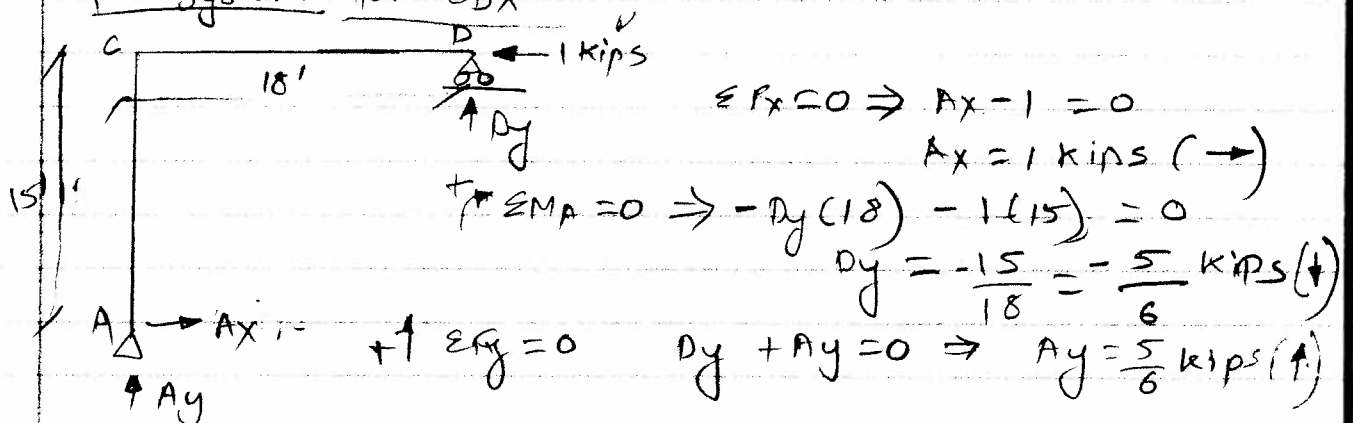 C D ← 1 kips
18'
↑ Dy
15'
A → Ax
↑ Ay
ΣFx = 0 ⇒ Ax - 1 = 0
Ax = 1 kips (→)
+ ΣMA = 0 ⇒ - Dy (18) - 1 (15) = 0
Dy = -15/18 = - 5/6 kips (↓)
+↑ ΣFy = 0 Dy + Ay = 0 ⇒ Ay = 5/6 kips (↑)